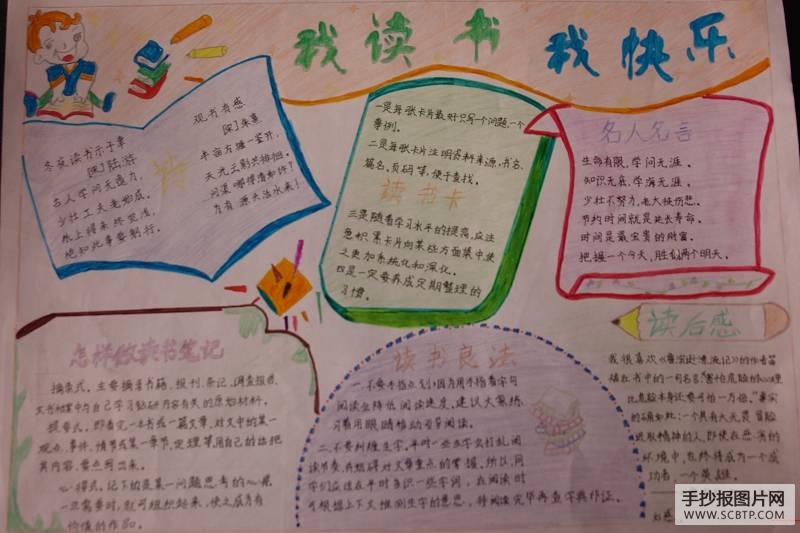 我读书 我快乐
冬夜读书示子聿
[宋]陆游
古人学问无遗力，
少壮工夫老始成。
纸上得来终觉浅，
绝知此事要躬行。
观书有感
[宋]朱熹
半亩方塘一鉴开，
天光云影共徘徊。
问渠哪得清如许？
为有源头活水来！
一是每张卡片最好只写一个问题，一个
事例。
二是每张卡片注明资料来源，书名、
篇名、页码等，便于查找。
读书卡
三是随着学习水平的提高，应注
意积累卡片向某些方面集中使
之更加系统化和深化。
四是一定要养成定期整理的
习惯。
名人名言
生命有限，学问无涯。
知识无底，学海无涯。
少壮不努力，老大徒伤悲。
节约时间就是延长寿命。
时间是最宝贵的财富。
把握一个今天，胜似两个明天。
怎样做读书笔记
摘录式。主要摘录书籍、报刊、杂记、调查报告、
文书档案中与自己学习钻研内容有关的原始材料。
提要式。即看完一本书或一篇文章，对文中的某一
观点、事件、情节或某一章节，定理等用自己的话把
其内容、要点写出来。
心得式。记下的是某一问题思考的心得
一旦需要时，就可组织起来，使之成为有
价值的作品。
读书良法
一.不要手指点划，因为用手指着字句
阅读会降低阅读速度，建议大家练
习着用眼睛移动引导阅读。
二.不要纠缠生字。平时一些生字会打乱阅
读节奏，并妨碍对文章重点的掌握。所以，同
学们应该在平时多识一些字词，在阅读时
可根据上下文推测生字的意思，待阅读完毕再查字典作证。
读后感
我很喜欢《鲁滨逊漂流记》的作者笛
福在书中的一句名言："害怕危险的心理
比危险本身还要可怕一万倍。"事实
的确如此：一个具有大无畏冒险
进取精神的人，即使在恶劣的
环境中，也终将成为一个成
功者，一个英雄。
手抄报图片网
WWW.SCBTP.COM